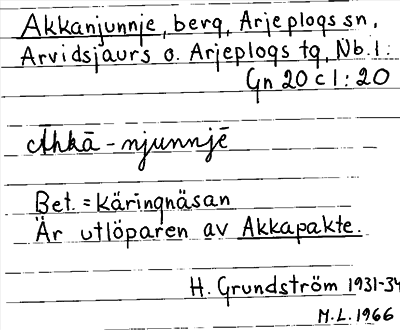 Akkanjunnje, berg, Arjeplogs sn,
Arvidsjaurs o. Arjeplogs tg, Nb. l.
Gn 20 c l : 20
Āhkā - njunnjē
Bet. = käringnäsan
Är utlöparen av Akkapakte.
H. Grundström 1931-34
M.L. 1966